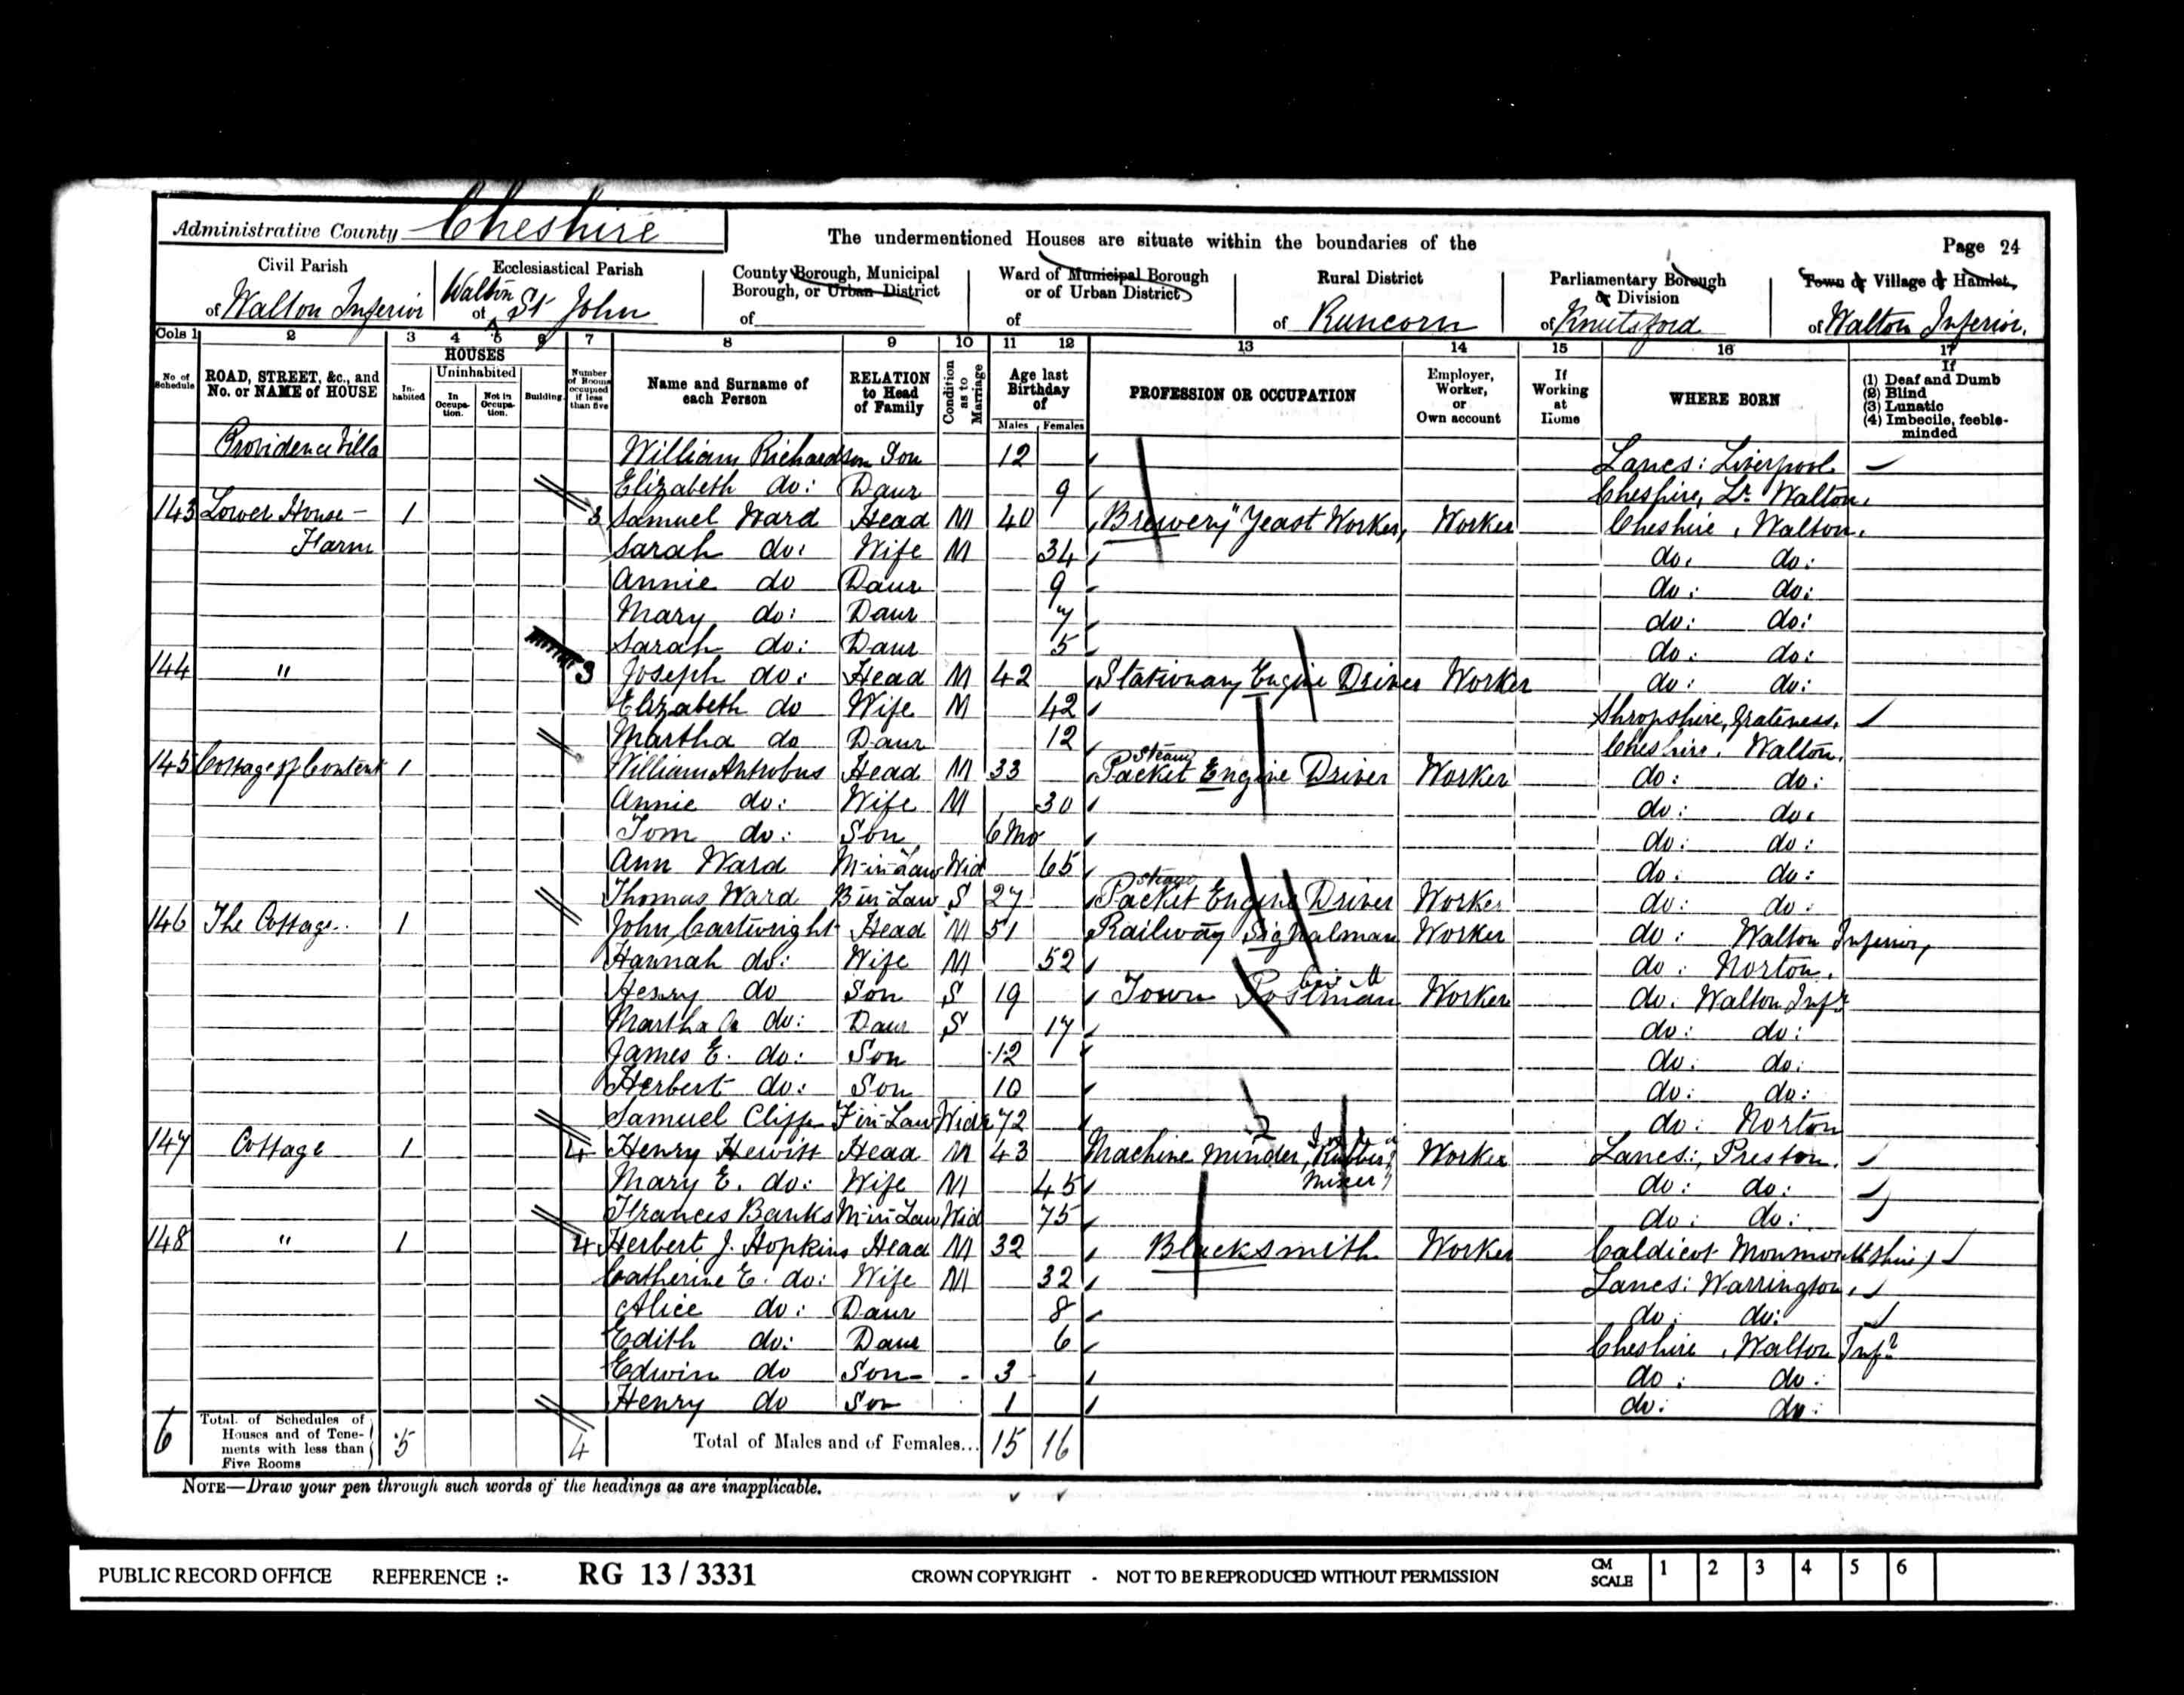 Administrative County Cheshire
The undermentioned Houses are situate within the boundaries of the
Page 24
Civil Parish of Walton Inferior
Ecclesiastical Parish of Walton St John
County Borough, Municipal Borough, or Urban District of
Ward of Municipal Borough or of Urban District of
Rural District of Runcorn
Parliamentary Borough or Division of Knutsford
Town or Village or Hamlet of Walton Inferior.
Cols 1 2 3 4 5 6 7 8 9 10 11 12 13 14 15 16 17
No of Schedule
ROAD, STREET, &c., and No. or NAME of HOUSE
HOUSES
In-habited
Uninhabited
In Occupa-tion.
Not in Occupa-tion.
Building.
Number of Rooms occupied if less than five
Name and Surname of each Person
RELATION to Head of Family
Condition as to Marriage
Age last Birthday of
Males Females
PROFESSION OR OCCUPATION
Employer, Worker, or Own account
If Working at Home
WHERE BORN
If
(1) Deaf and Dumb
(2) Blind
(3) Lunatic
(4) Imbecile, feeble-minded
Providence Villa William Richardson Son 12 Lancs: Liverpool
Elizabeth do: Daur 9 Cheshire, Lr Walton.
143 Lower House - 1 3 Samuel Ward Head M 40 Brewery "Yeast Worker, Worker Cheshire, Walton.
Farm Sarah do: Wife M 34 do: do:
Annie do Daur 9 do: do:
Mary do: Daur 7 do: do:
Sarah do: Daur 5 do: do:
144 " 3 Joseph do: Head M 42 Stationary Engine Driver Worker do: do:
Elizabeth do Wife M 42 Shropshire,
Martha do Daur 12 Cheshire. Walton.
145 Cottage of Content 1 William Antrobus Head M 33 Steam Packet Engine Driver Worker do: do:
Annie do: Wife M 30 do: do:
Tom do: Son 6 Mo do: do:
Ann Ward M-in-Law Wid 65 do: do:
Thomas Ward B-in-Law S 27 Steam Packet Engine Driver Worker do: do:
146 The Cottage. 1 John Cartwright Head M 51 Railway Signalman Worker do: Walton Inferior,
Hannah do: Wife M 52 do: Norton.
Henry do Son S 19 Town Postman Worker do: Walton Infr
Martha A do: Daur S 17 do: do:
James E. do: Son 12 do: do:
Herbert do: Son 10 do: do:
Samuel Cliffe F-in-Law Widr 72 do: Norton
147 Cottage 1 4 Henry Hewitt Head M 43 Machine Minder, Rubber Worker Lancs:, Preston.
Mary E. do: Wife M 45 Mixer do: do:
Frances Banks M-in-Law Wid 75 do: do:
148 " 1 4 Herbert J. Hopkins Head M 32 Blacksmith Worker Caldicot Monmouthshire
Catherine E. do: Wife M 32 Lancs: Warrington.
Alice do: Daur 8 do: do:
Edith do: Daur 6 Cheshire, Walton Infr
Edwin do Son 3 do: do:
Henry do Son 1 do: do:
6 Total of Schedules of Houses and of Tene-ments with less than Five Rooms 5 4 Total of Males and of Females... 15 16
NOTE—Draw your pen through such words of the headings as are inapplicable.
PUBLIC RECORD OFFICE REFERENCE :- RG 13 / 3331 CROWN COPYRIGHT - NOT TO BE REPRODUCED WITHOUT PERMISSION CM SCALE 1 2 3 4 5 6